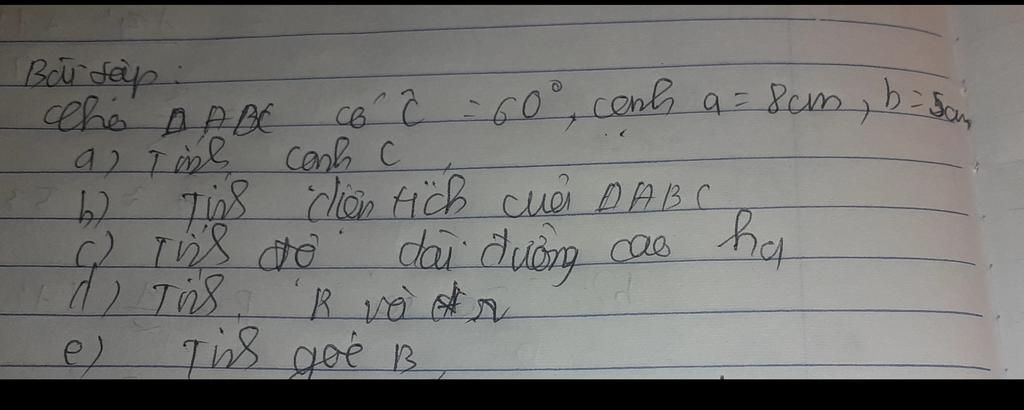 Bài tập:
Cho ΔABC có Ĉ = 60°, cạnh a = 8cm, b = 5cm
a) Tính cạnh C
b) Tính diện tích của ΔABC
c) Tính độ dài đường cao ha
d) Tính R và r
e) Tính góc B